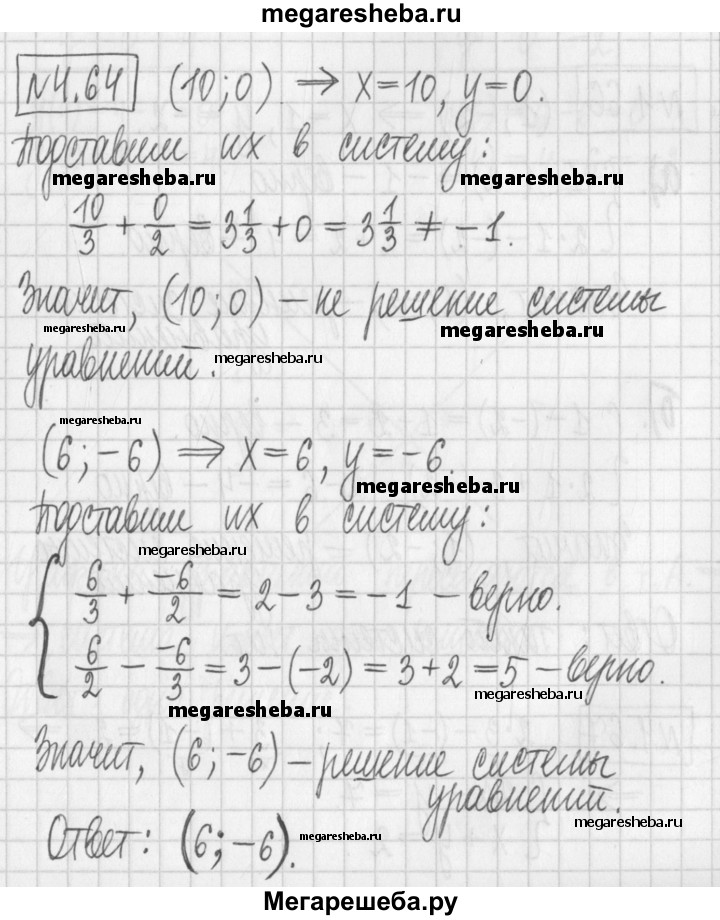 megaresheba.ru
№4.64 (10;0) ⇒ x=10, y=0.
Подставим их в систему:
megaresheba.ru megaresheba.ru
10/3 + 0/2 = 3 1/3 + 0 = 3 1/3 ≠ -1.
Значит, (10;0) – не решение системы
megaresheba.ru megaresheba.ru
уравнений. megaresheba.ru
megaresheba.ru
(6;-6) ⇒ x=6, y=-6.
megaresheba.ru
Подставим их в систему:
megaresheba.ru
{ 6/3 + -6/2 = 2-3 = -1 – верно.
6/2 - -6/3 = 3-(-2) = 3+2 = 5 – верно.
megaresheba.ru
megaresheba.ru
Значит, (6;-6) – решение системы
уравнений.
megaresheba.ru
Ответ: (6;-6).
megaresheba.ru
Мегарешеба.ру